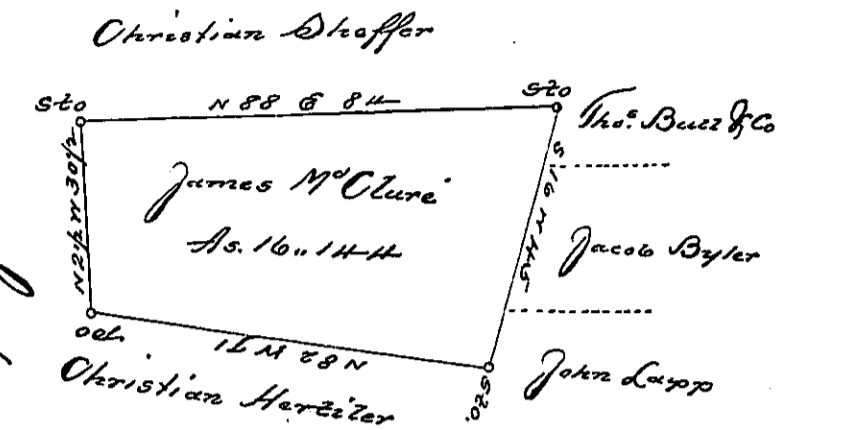 Christian Shaffer
Sto
N 88 E 84
Sto
Thos. Bull & Co
N 2½ W 30½
James McClure
As. 16..144
S 16 W 45
Jacob Byler
N 82 W 71
Christian Hertzler
Sto.
John Lapp